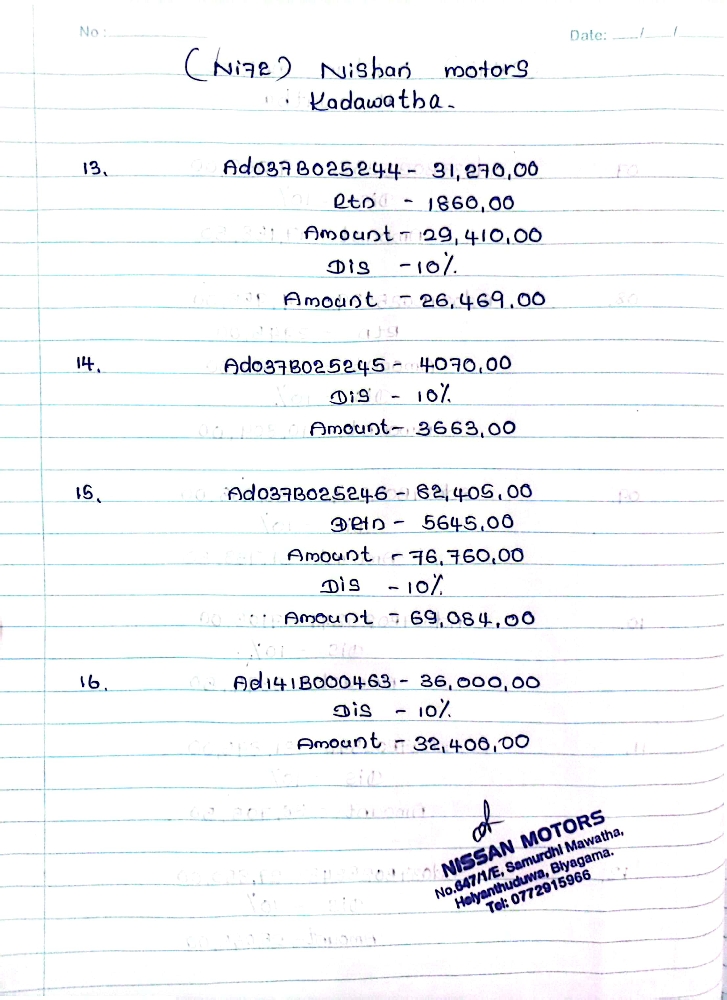 No: Date: / /
(Ni72) Nishan motors
Kadawatha.
13. Ad037B025244 - 31,270,00
Rtn - 1860,00
Amount - 29,410,00
Dis - 10%
Amount - 26,469.00
14. Ad037B025245 - 4070,00
Dis - 10%
Amount - 3663,00
15. Ad037B025246 - 82,405,00
Rtn - 5645,00
Amount - 76,760,00
Dis - 10%
Amount - 69,084,00
16. Ad141B000463 - 36,000,00
Dis - 10%
Amount - 32,400,00
NISSAN MOTORS
No.647/1/E, Samurdhi Mawatha,
Heiyanthuduwa, Biyagama.
Tel: 0772915966